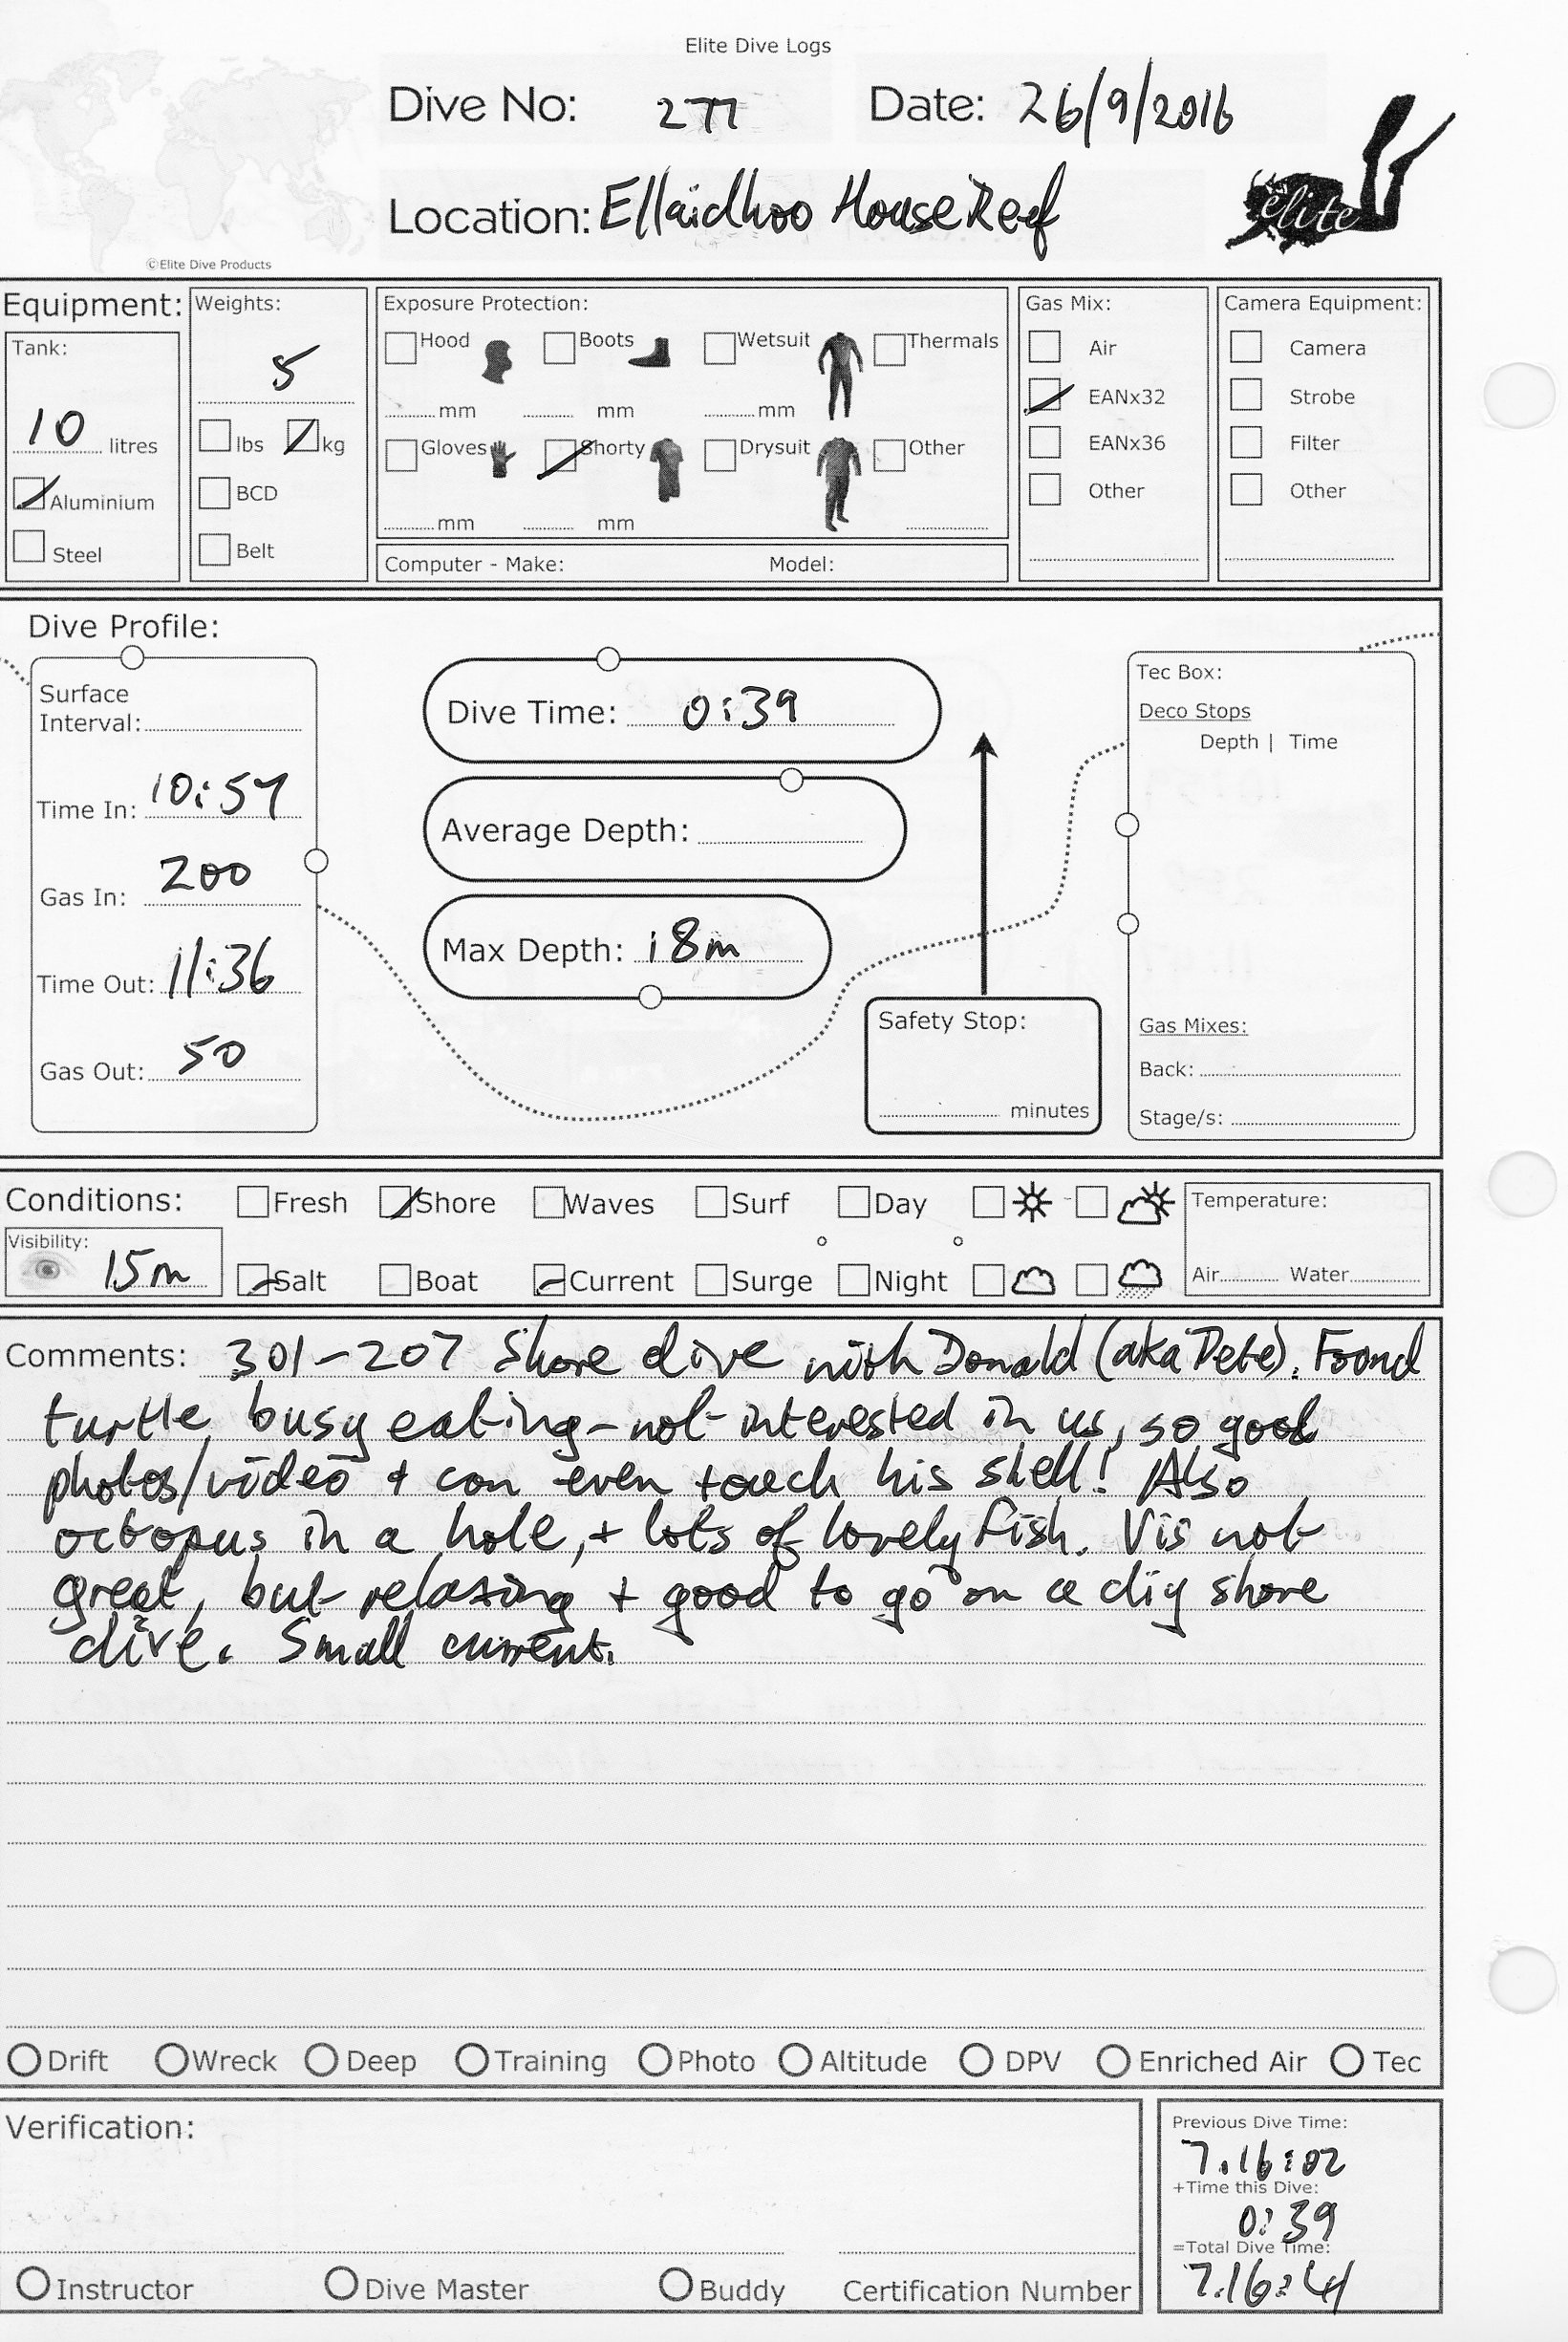 Elite Dive Logs
Dive No: 277 Date: 26/9/2016
Location: Ellaidhoo House Reef
elite
©Elite Dive Products
Equipment: Weights: Exposure Protection: Gas Mix: Camera Equipment:
Tank: 5 Hood Boots Wetsuit Thermals Air Camera
mm mm mm EANx32 Strobe
10 litres lbs kg Gloves Shorty Drysuit Other EANx36 Filter
Aluminium BCD Other Other
mm mm
Steel Belt Computer - Make: Model:
Dive Profile:
Surface
Interval:
Time In: 10:57
Gas In: 200
Time Out: 11:36
Gas Out: 50
Dive Time: 0:39
Average Depth:
Max Depth: 18m
Safety Stop:
minutes
Tec Box:
Deco Stops
Depth | Time
Gas Mixes:
Back:
Stage/s:
Conditions: Fresh Shore Waves Surf Day Temperature:
Visibility: 15m Salt Boat Current Surge Night Air Water
Comments: 301-207 Shore dive with Donald (aka Pete). Found
turtle busy eating - not interested in us, so good
photos/video + can even touch his shell! Also
octopus in a hole, + lots of lovely fish. Vis not
great, but relaxing + good to go on a diy shore
dive. Small current.
Drift Wreck Deep Training Photo Altitude DPV Enriched Air Tec
Verification:
Instructor Dive Master Buddy Certification Number
Previous Dive Time:
7.16:02
+Time this Dive:
0:39
=Total Dive Time:
7.16:41